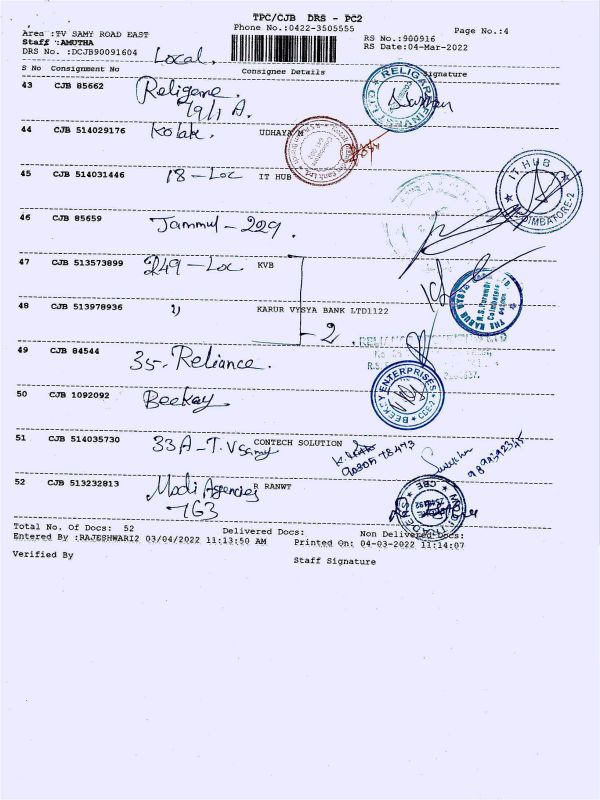 TPC/CJB DRS - PC2
Phone No.:0422-3505555
Page No.:4
Area :TV SAMY ROAD EAST
Staff :AMUTHA
RS No.:900916
DRS No. :DCJB90091604
RS Date:04-Mar-2022
Local.
S No Consignment No Consignee Details Signature
43 CJB 85662 Religare
79/1 A.
44 CJB 514029176 Kotak. UDHAYA M
45 CJB 514031446 18-Loc IT HUB
IT HUB
COIMBATORE-2
46 CJB 85659 Jammul-229.
47 CJB 513573899 249-Loc KVB
48 CJB 513978936 KARUR VYSYA BANK LTD1122
- 2
49 CJB 84544 35-Reliance.
50 CJB 1092092 Beekay
BEEKAY ENTERPRISES
51 CJB 514035730 33A-T.VSamy CONTECH SOLUTION
52 CJB 513232813 Modi Agencies R RANWT
-163
Total No. Of Docs: 52 Delivered Docs: Non Delivered Docs:
Entered By :RAJESHWARI2 03/04/2022 11:13:50 AM Printed On: 04-03-2022 11:14:07
Verified By
Staff Signature